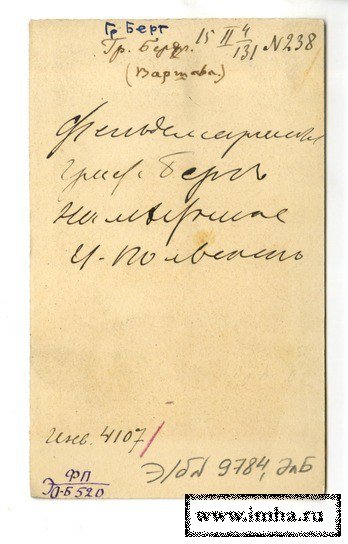 Гр Берг
Гр. Берг. 15 II 4/131 №238
(Варшава.)
Фельдмаршал
Граф Бергъ
Намѣстник
Ц. Польскаго
Инв. 4107/
ФП
Э/бл 9784,
Б520
www.imha.ru